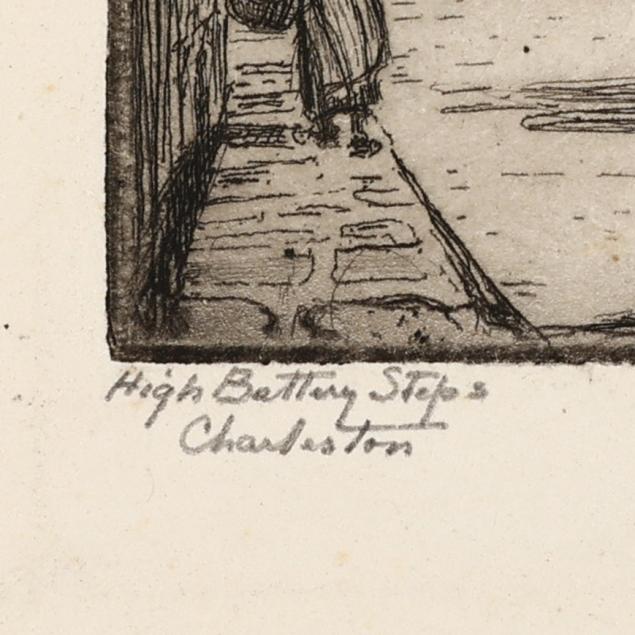 High Battery Steps
Charleston